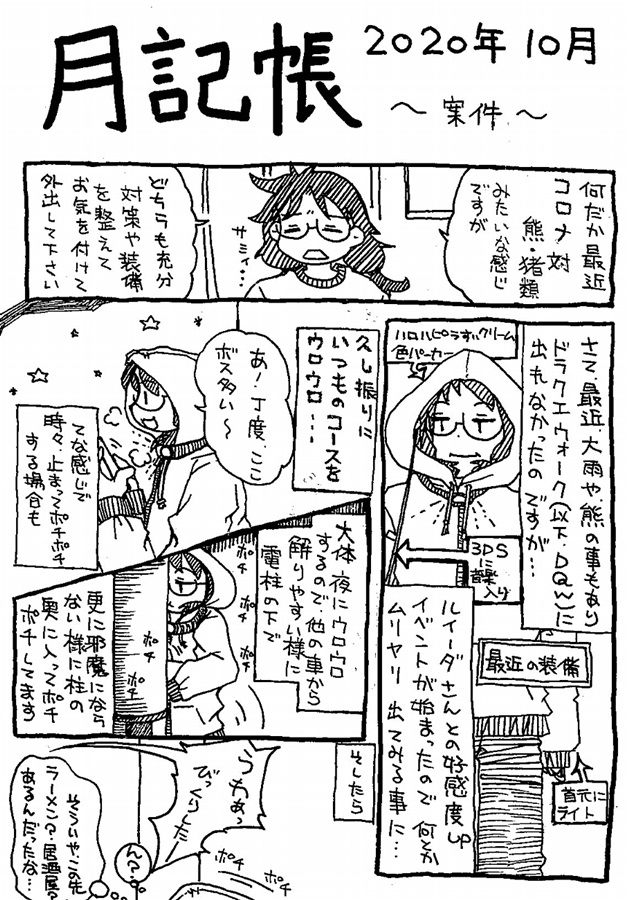 月記帳
2020年10月
～案件～
何だか最近
コロナ対
熊・猪類
みたいな感じ
ですが
サミィ…
どちらも充分
対策や装備
を整えて
お気を付けて
外出して下さい
さて、最近、大雨や熊の事もあり
ドラクエウォーク(以下、DQW)に
出れなかったのですが…
ハロハピうすいクリーム
色パーカー
3DS
に
音楽
入り
ルイーダさんとの好感度up
イベントが始まったので何とか
ムリヤリ出てみる事に…
最近の装備
首元に
ライト
久し振りに
いつものコースを
ウロウロ…
あ!丁度、ここ
ボス多い～
てな感じで
時々、止まってポチポチ
する場合も
大体、夜にウロウロ
するので、他の車から
解りやすい様に
電柱の下で
ポチ
ポチ
ポチ
ポチ
ポチ
更に邪魔になら
ない様に柱の
奥に入ってポチ
ポチしてます
そしたら
うわぁっ
びっくりしたー
ポチ
ポチ
ポチ
ん?
そういや、この先
ラーメン?居酒屋?
あるんだったな…